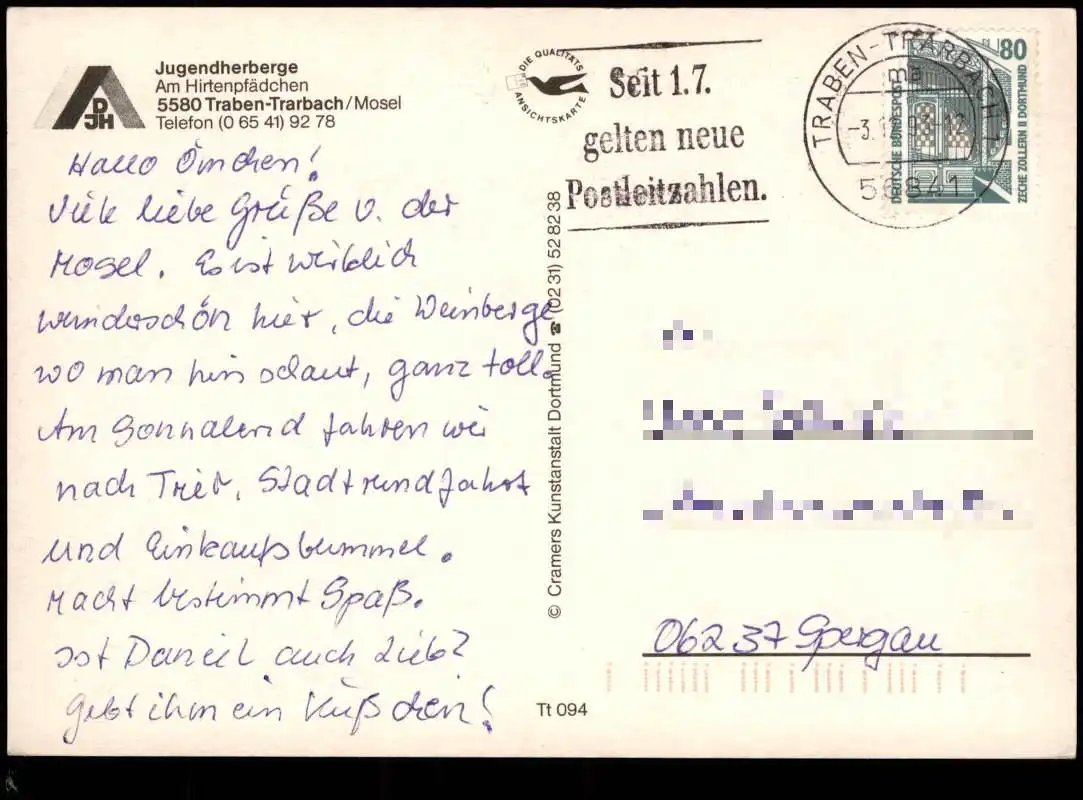 Jugendherberge
Am Hirtenpfädchen
5580 Traben-Trarbach/Mosel
Telefon (0 65 41) 92 78
DJH
Hallo Ömchen!
Viele liebe Grüße v. der
Mosel. Es ist wirklich
wunderschön hier, die Weinberge
wo man hinschaut, ganz toll.
Am Sonnabend fahren wir
nach Trier, Stadtrundfahrt
und Einkaufsbummel.
Macht bestimmt Spaß.
Ist Daniel auch lieb?
Gebt ihm ein Küßchen!
DIE QUALITÄTS
ANSICHTSKARTE
© Cramers Kunstanstalt Dortmund ☎ (02 31) 52 82 38
Tt 094
Seit 1.7.
gelten neue
Postleitzahlen.
TRABEN-TRARBACH 1
ma
56841
80
DEUTSCHE BUNDESPOST
ZECHE ZOLLERN II DORTMUND
06237 Spergau